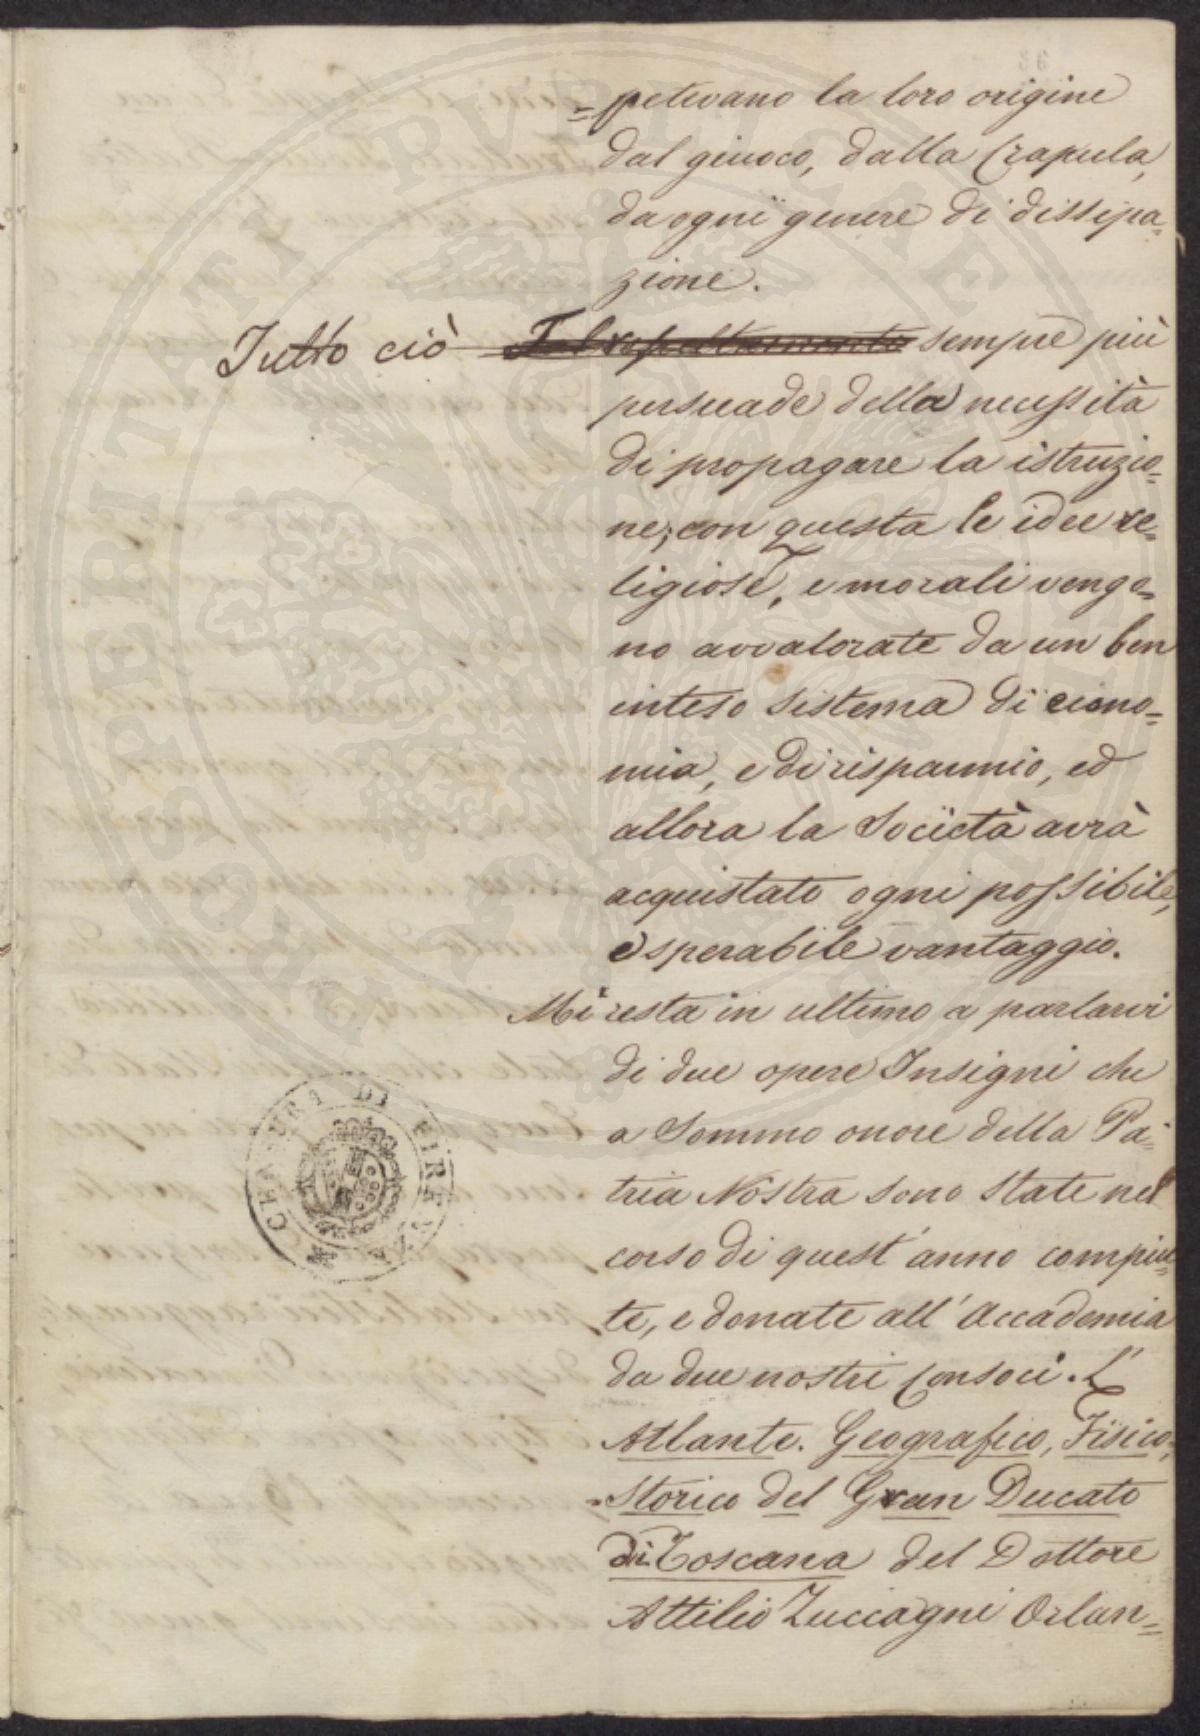 =petevano la loro origine
dal giuoco, dalla Crapula,
da ogni genere di dissipa=
zione.
Tutto ciò sempre più
persuade della necessità
di propagare la istruzio=
ne; con questa le idee re=
ligiose, e morali vengo=
no avvalorate da un ben
inteso sistema di econo=
mia, e di risparmio, ed
allora la Società avrà
acquistato ogni possibile,
e sperabile vantaggio.
Mi resta in ultimo a parlarvi
di due opere Insigni che
a Sommo onore della Pa=
tria Nostra sono State nel
corso di quest'anno compiu=
te, e donate all'Accademia
da due nostri Consoci. L'
Atlante. Geografico, Fisico,
=Storico del Gran Ducato
di Toscana del Dottore
Attilio Zuccagni Orlan=
ACHUSA DI FIRENZE
PROSPERITATI PVBLICAE